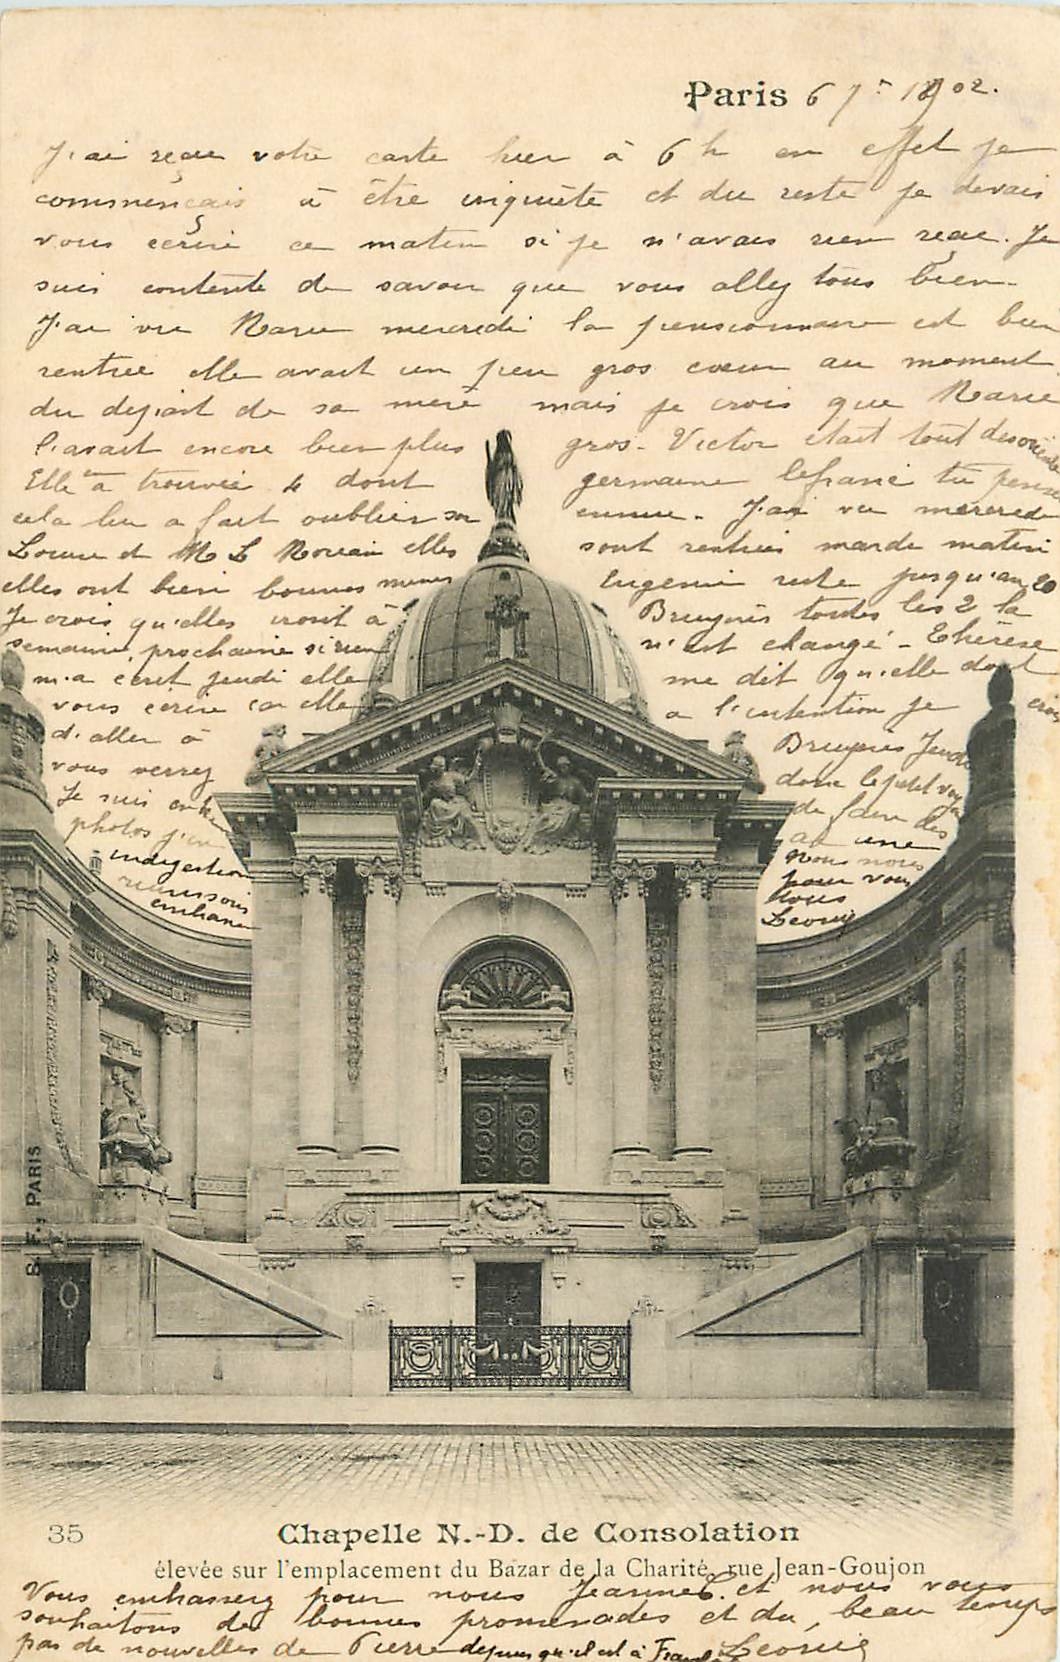 Paris 6 7re 1902.
J'ai reçu votre carte hier à 6 h en effet je
commençais à être inquiète et du reste je devais
vous écrire ce matin si je n'avais rien reçu. Je
suis contente de savoir que vous allez tous bien.
J'ai vu Marie mercredi la pensionnaire est bien
rentrée elle avait un peu gros coeur au moment
du départ de sa mère mais je crois que Marie
l'avait encore bien plus gros. Victor était tout
Elle a trouvée 4 dont germaine lefranc tu pense
cela lui a fait oublier son ennui. J'ai vu mercredi
Louise et M L elles sont rentrées mardi matin
elles ont bien bonnes mines Eugenie reste jusqu'au 20
Je crois qu'elles iront à Bruyères toutes les 2 la
semaine prochaine si rien n'est changé - Thérèse
m'a écrit jeudi elle me dit qu'elle doit
vous écrire car elle a l'intention je crois
d'aller à Bruyères Jeudi
vous verrez donc le petit
Je suis de faire des
photos j'en ai une
indigestion nous nous
réunissons pour vous
embrasser tous
Léonie
S. F., PARIS
35
Chapelle N.-D. de Consolation
élevée sur l'emplacement du Bazar de la Charité, rue Jean-Goujon
Vous embrasserez pour nous Jeanne et nous vous
souhaitons de bonnes promenades et du beau temps
pas de nouvelles de Pierre depuis qu'il est à Léonie